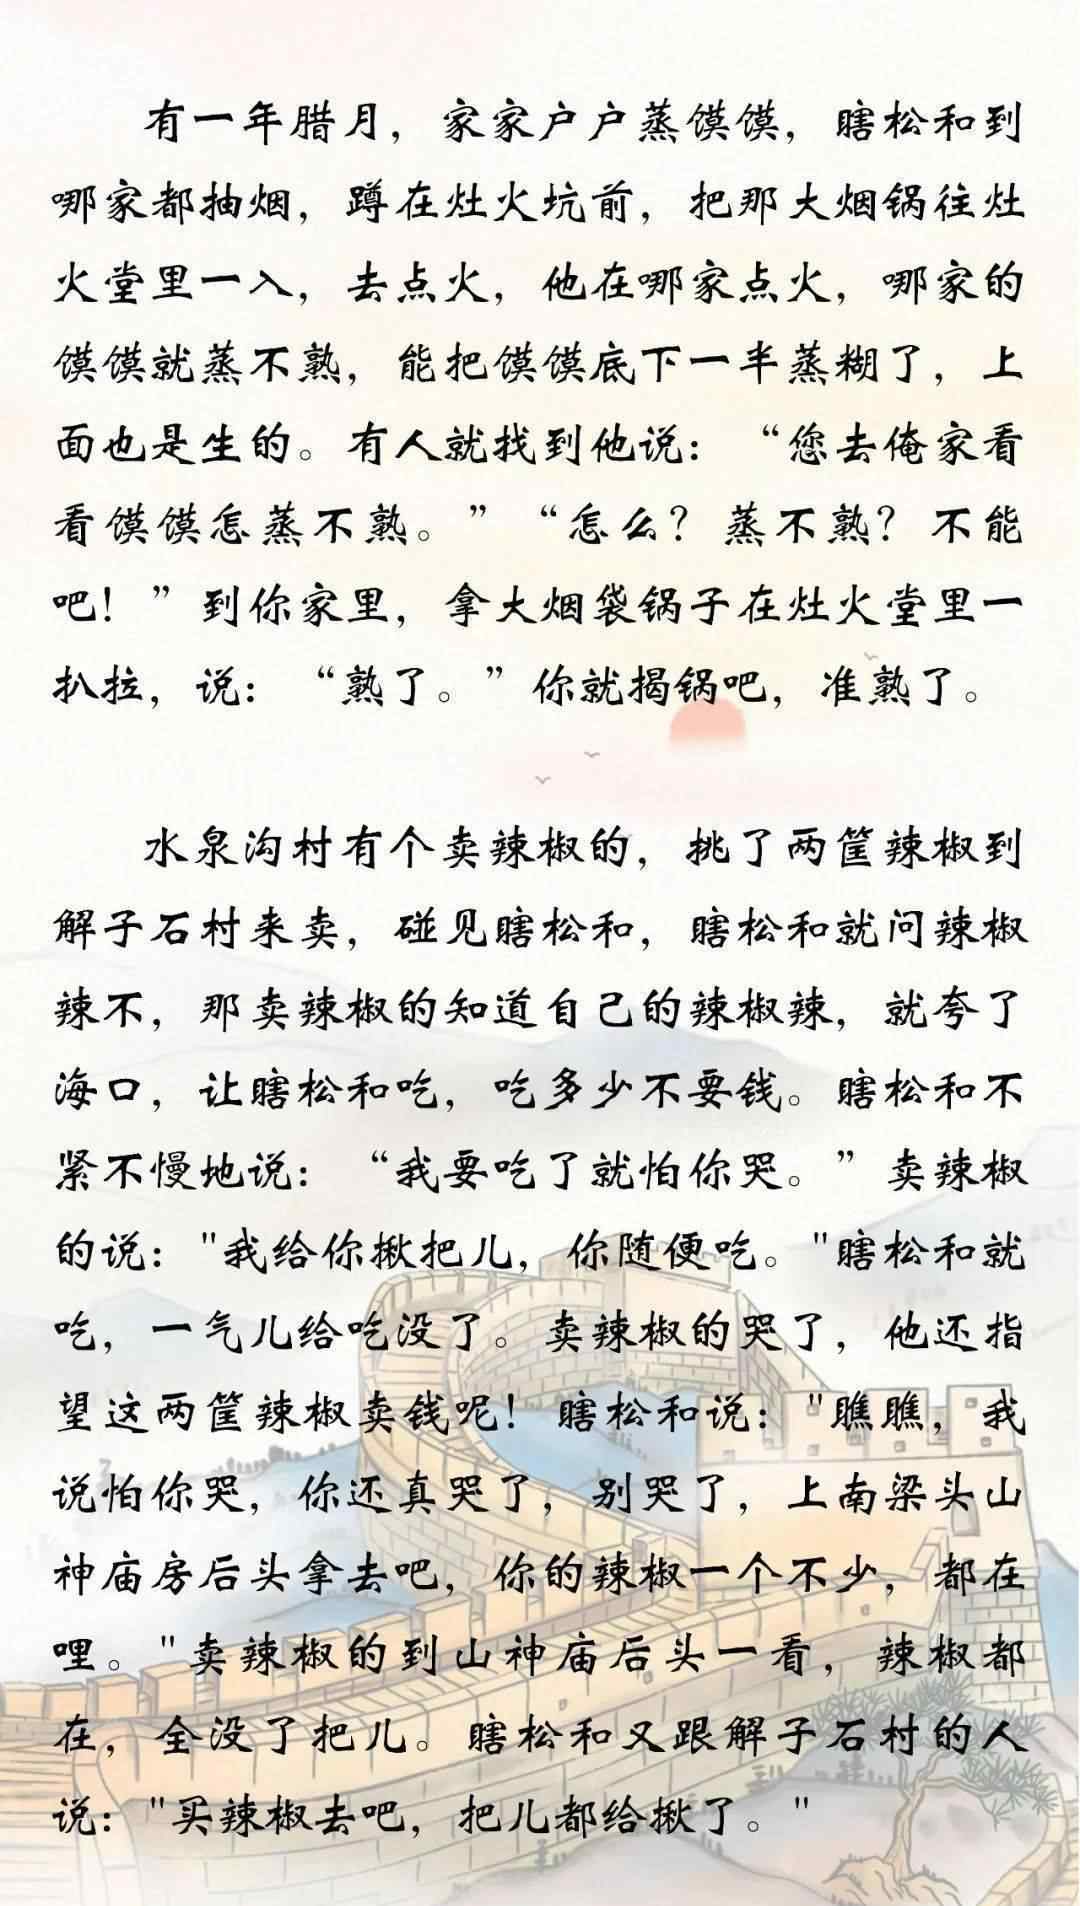 有一年腊月，家家户户蒸馍馍，瞎松和到
哪家都抽烟，蹲在灶火坑前，把那大烟锅往灶
火堂里一入，去点火，他在哪家点火，哪家的
馍馍就蒸不熟，能把馍馍底下一半蒸糊了，上
面也是生的。有人就找到他说：“您去俺家看
看馍馍怎蒸不熟。”“怎么？蒸不熟？不能
吧！”到你家里，拿大烟袋锅子在灶火堂里一
扒拉，说：“熟了。”你就揭锅吧，准熟了。
水泉沟村有个卖辣椒的，挑了两筐辣椒到
解子石村来卖，碰见瞎松和，瞎松和就问辣椒
辣不，那卖辣椒的知道自己的辣椒辣，就夸了
海口，让瞎松和吃，吃多少不要钱。瞎松和不
紧不慢地说：“我要吃了就怕你哭。”卖辣椒
的说："我给你揪把儿，你随便吃。"瞎松和就
吃，一气儿给吃没了。卖辣椒的哭了，他还指
望这两筐辣椒卖钱呢！瞎松和说："瞧瞧，我
说怕你哭，你还真哭了，别哭了，上南梁头山
神庙房后头拿去吧，你的辣椒一个不少，都在
哩。"卖辣椒的到山神庙后头一看，辣椒都
在，全没了把儿。瞎松和又跟解子石村的人
说："买辣椒去吧，把儿都给揪了。"